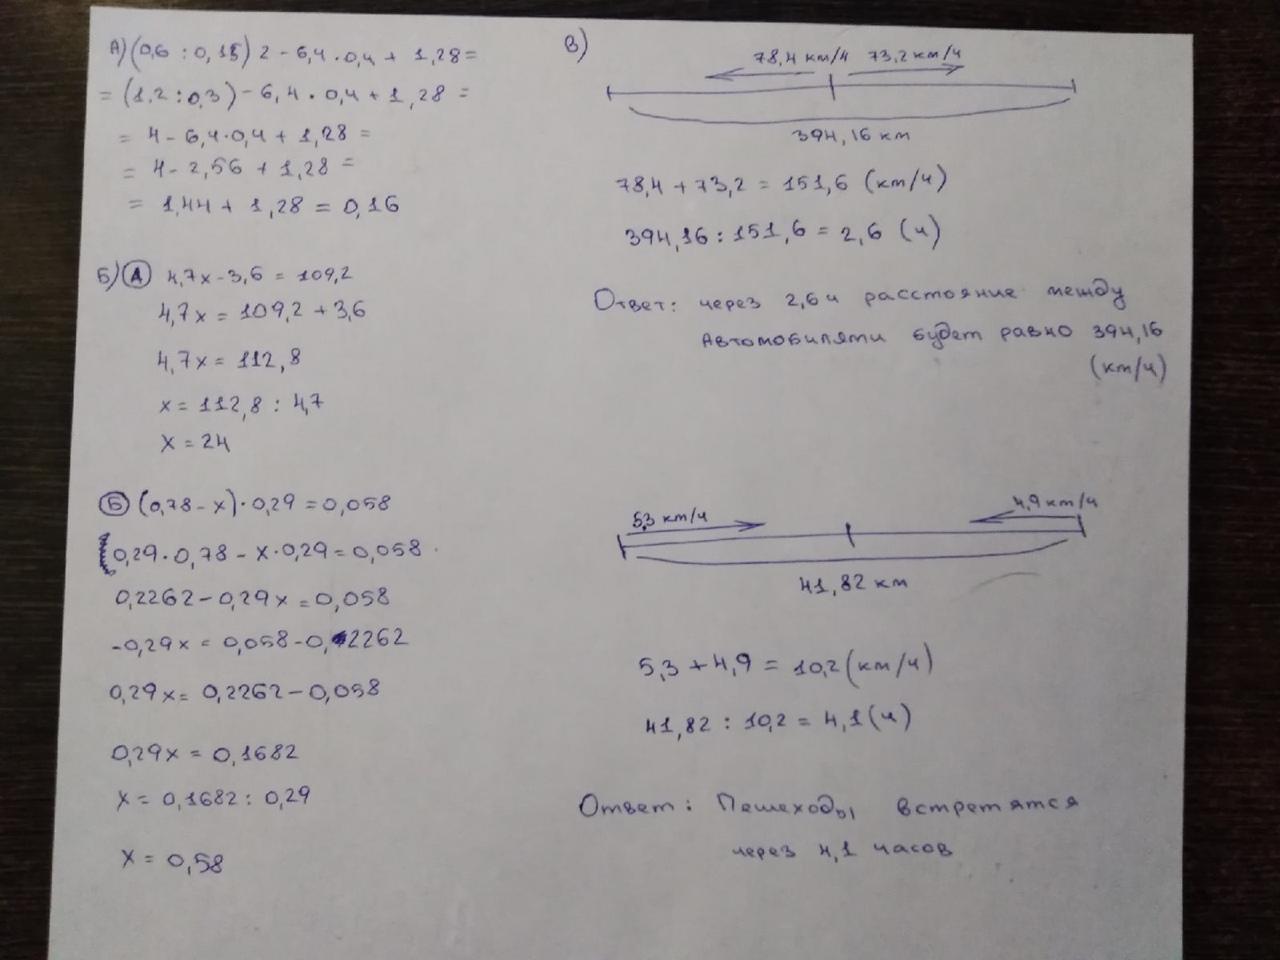 А) (0,6 : 0,15) 2 - 6,4 · 0,4 + 1,28 =
= (1,2 : 0,3) - 6,4 · 0,4 + 1,28 =
= 4 - 6,4 · 0,4 + 1,28 =
= 4 - 2,56 + 1,28 =
= 1,44 + 1,28 = 0,16
Б) А 4,7x - 3,6 = 109,2
4,7x = 109,2 + 3,6
4,7x = 112,8
x = 112,8 : 4,7
x = 24
Б (0,78 - x) · 0,29 = 0,058
0,29 · 0,78 - x · 0,29 = 0,058
0,2262 - 0,29x = 0,058
-0,29x = 0,058 - 0,2262
0,29x = 0,2262 - 0,058
0,29x = 0,1682
x = 0,1682 : 0,29
x = 0,58
В)
78,4 км/ч 73,2 км/ч
394,16 км
78,4 + 73,2 = 151,6 (км/ч)
394,16 : 151,6 = 2,6 (ч)
Ответ: через 2,6 ч расстояние между
автомобилями будет равно 394,16
(км/ч)
5,3 км/ч 4,9 км/ч
41,82 км
5,3 + 4,9 = 10,2 (км/ч)
41,82 : 10,2 = 4,1 (ч)
Ответ: Пешеходы встретятся
через 4,1 часов